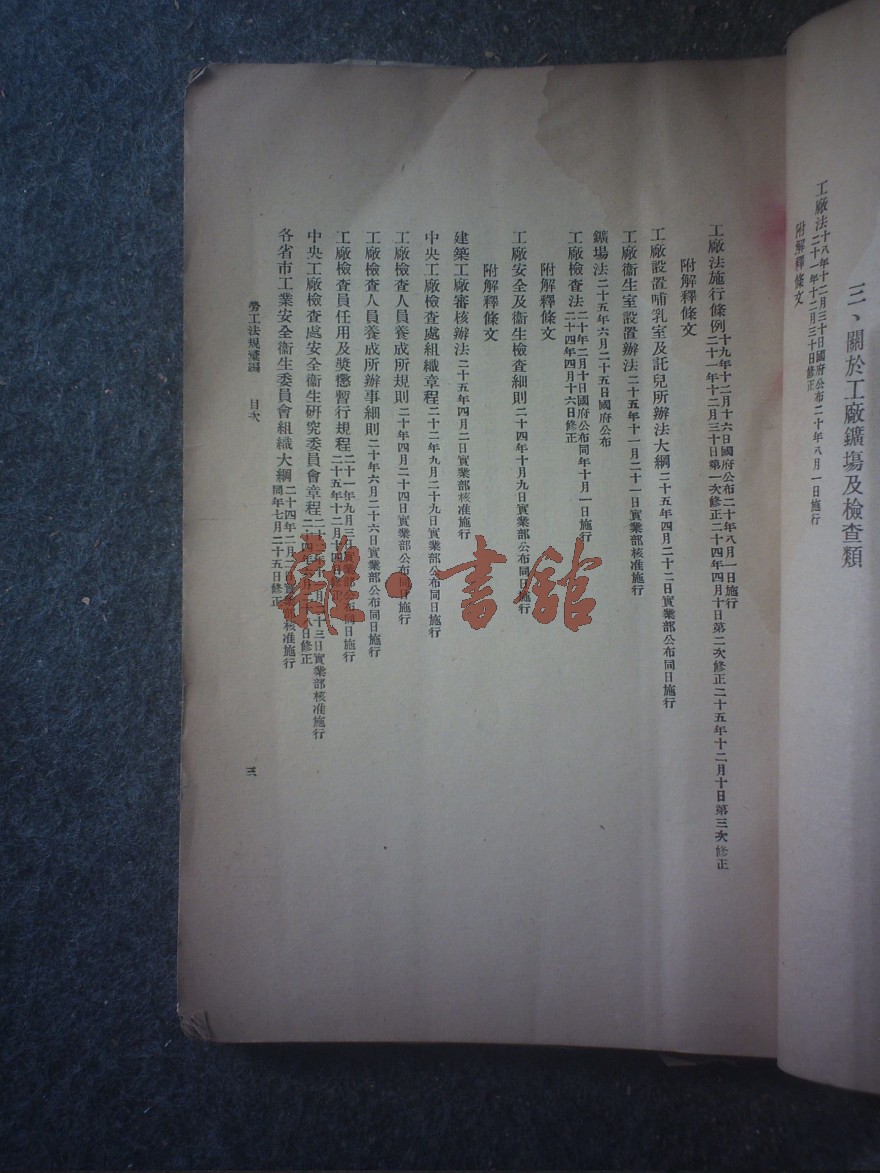 三、關於工廠鑛塲及檢查類
工廠法十八年十二月三十日國府公布二十年八月一日施行
二十一年十二月三十日修正
附解釋條文
工廠法施行條例十九年十二月十六日國府公布二十年八月一日施行
二十一年十二月三十日第一次修正二十四年四月十日第二次修正二十五年十二月十日第三次修正
附解釋條文
工廠設置哺乳室及託兒所辦法大綱二十五年四月二十二日實業部公布同日施行
工廠衞生室設置辦法二十五年十一月二十一日實業部核准施行
鑛場法二十五年六月二十五日國府公布
工廠檢查法二十年二月十日國府公布同年十月一日施行
二十四年四月十六日修正
附解釋條文
工廠安全及衞生檢查細則二十四年十月九日實業部公布同日施行
附解釋條文
建築工廠審核辦法二十五年四月二日實業部核准施行
中央工廠檢查處組織章程二十二年九月二十九日實業部公布同日施行
工廠檢查人員養成所規則二十年四月二十四日實業部公布同日施行
工廠檢查人員養成所辦事細則二十年六月二十六日實業部公布同日施行
工廠檢查員任用及奬懲暫行規程二十一年九月三日實業部公布同日施行
二十五年十二月十四日修正
中央工廠檢查處安全衞生研究委員會章程二十三日實業部核准施行
二十四年八日修正
各省市工業安全衞生委員會組織大綱二十四年二月二日實業部核准施行
同年七月二十五日修正
勞工法規彙編 目次
三
雜·書館